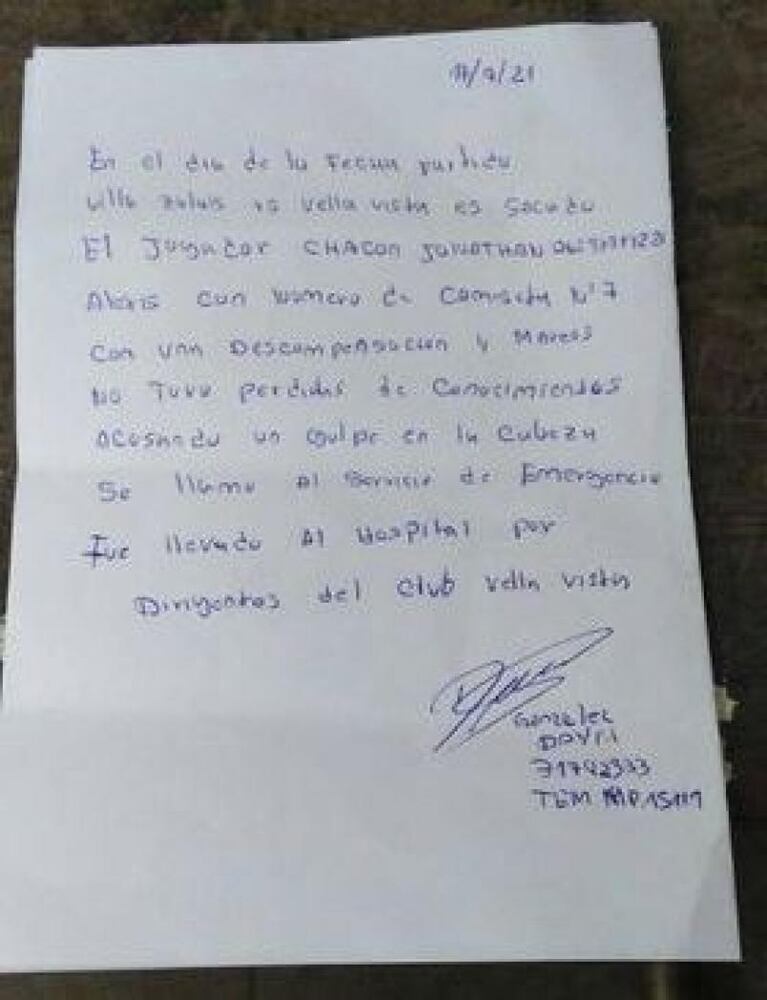 En el dia de la Fecha partido
villa xxxxx vs vella vista es sacado
El Jugador CHACON JONATHAN
Alexis con numero de camiseta N°7
Con una Descompensacion y Mareos
No Tuvo perdidas de Conocimientos
acusando un Golpe en la Cabeza
Se llamo Al Servicio de Emergencia
Fue llevado Al Hospital por
Dirigentes del Club vella vista
Gonzalez
DAVID
31742333
TEM MP.